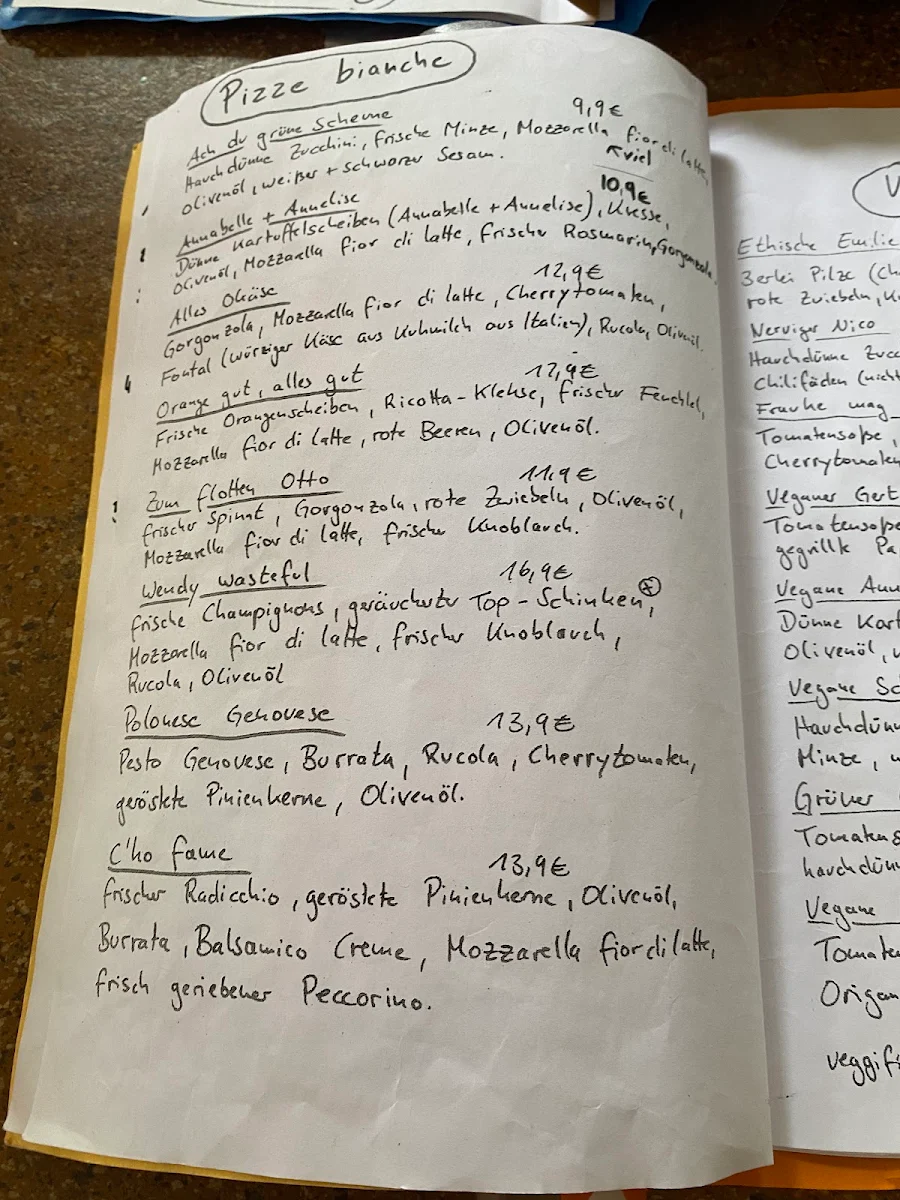 Pizze bianche
Ach du grüne Scheune 9,9€
Hauchdünne Zucchini, frische Minze, Mozzarella fior di latte,
↖viel
Olivenöl, weißer + schwarzer Sesam.
Annabelle + Annelise 10,9€
Dünne Kartoffelscheiben (Annabelle + Annelise), Kresse,
Olivenöl, Mozzarella fior di latte, frischer Rosmarin, Gorgonzola.
Alles Okäse 12,9€
Gorgonzola, Mozzarella fior di latte, Cherrytomaten,
Fontal (würziger Käse aus Kuhmilch aus Italien), Rucola, Olivenöl.
Orange gut, alles gut 12,9€
Frische Orangenscheiben, Ricotta-Klekse, frischer Fenchel,
Mozzarella fior di latte, rote Beeren, Olivenöl.
Zum flotten Otto 11,9€
frischer Spinat, Gorgonzola, rote Zwiebeln, Olivenöl,
Mozzarella fior di latte, frischer Knoblauch.
Wendy wasteful 16,9€
frische Champignons, geräucherter Top-Schinken,
Mozzarella fior di latte, frischer Knoblauch,
Rucola, Olivenöl
Polonese Genovese 13,9€
Pesto Genovese, Burrata, Rucola, Cherrytomaten,
geröstete Pinienkerne, Olivenöl.
C'ho fame 13,9€
frischer Radicchio, geröstete Pinienkerne, Olivenöl,
Burrata, Balsamico Creme, Mozzarella fior di latte,
frisch geriebener Peccorino.
V
Ethische Emilie
3erlei Pilze (Ch
rote Zwiebeln, K
Nerviger Nico
Hauchdünne Zucc
Chilifäden (nicht
Frauke mag
Tomatensoße,
Cherrytomaten
Veganer Gert
Tomatensoße
gegrillte Pa
Vegane Ann
Dünne Kart
Olivenöl,
Vegane Sc
Hauchdün
Minze,
Grüner
Tomatens
hauchdün
Vegane
Tomate
Origan
veggif